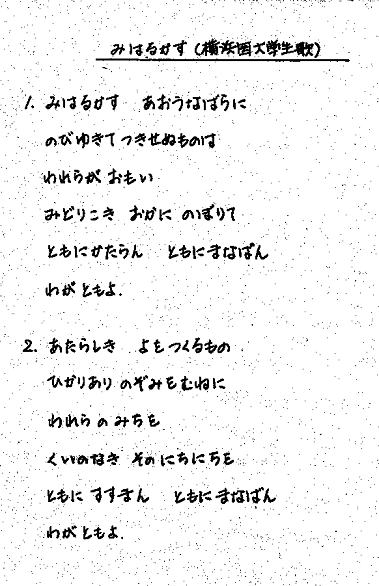 みはるかす (横浜国大学生歌)
1. みはるかす あおうなばらに
のびゆきてつきせぬものは
われらが おもい
みどりこき おかに のぼりて
ともにかたらん ともにまなばん
わが ともよ.
2. あたらしき よをつくるもの
ひかりあり のぞみをむねに
われらのみちを
くいのなき そのにちにちを
ともに すすまん ともに まなばん
わが ともよ.